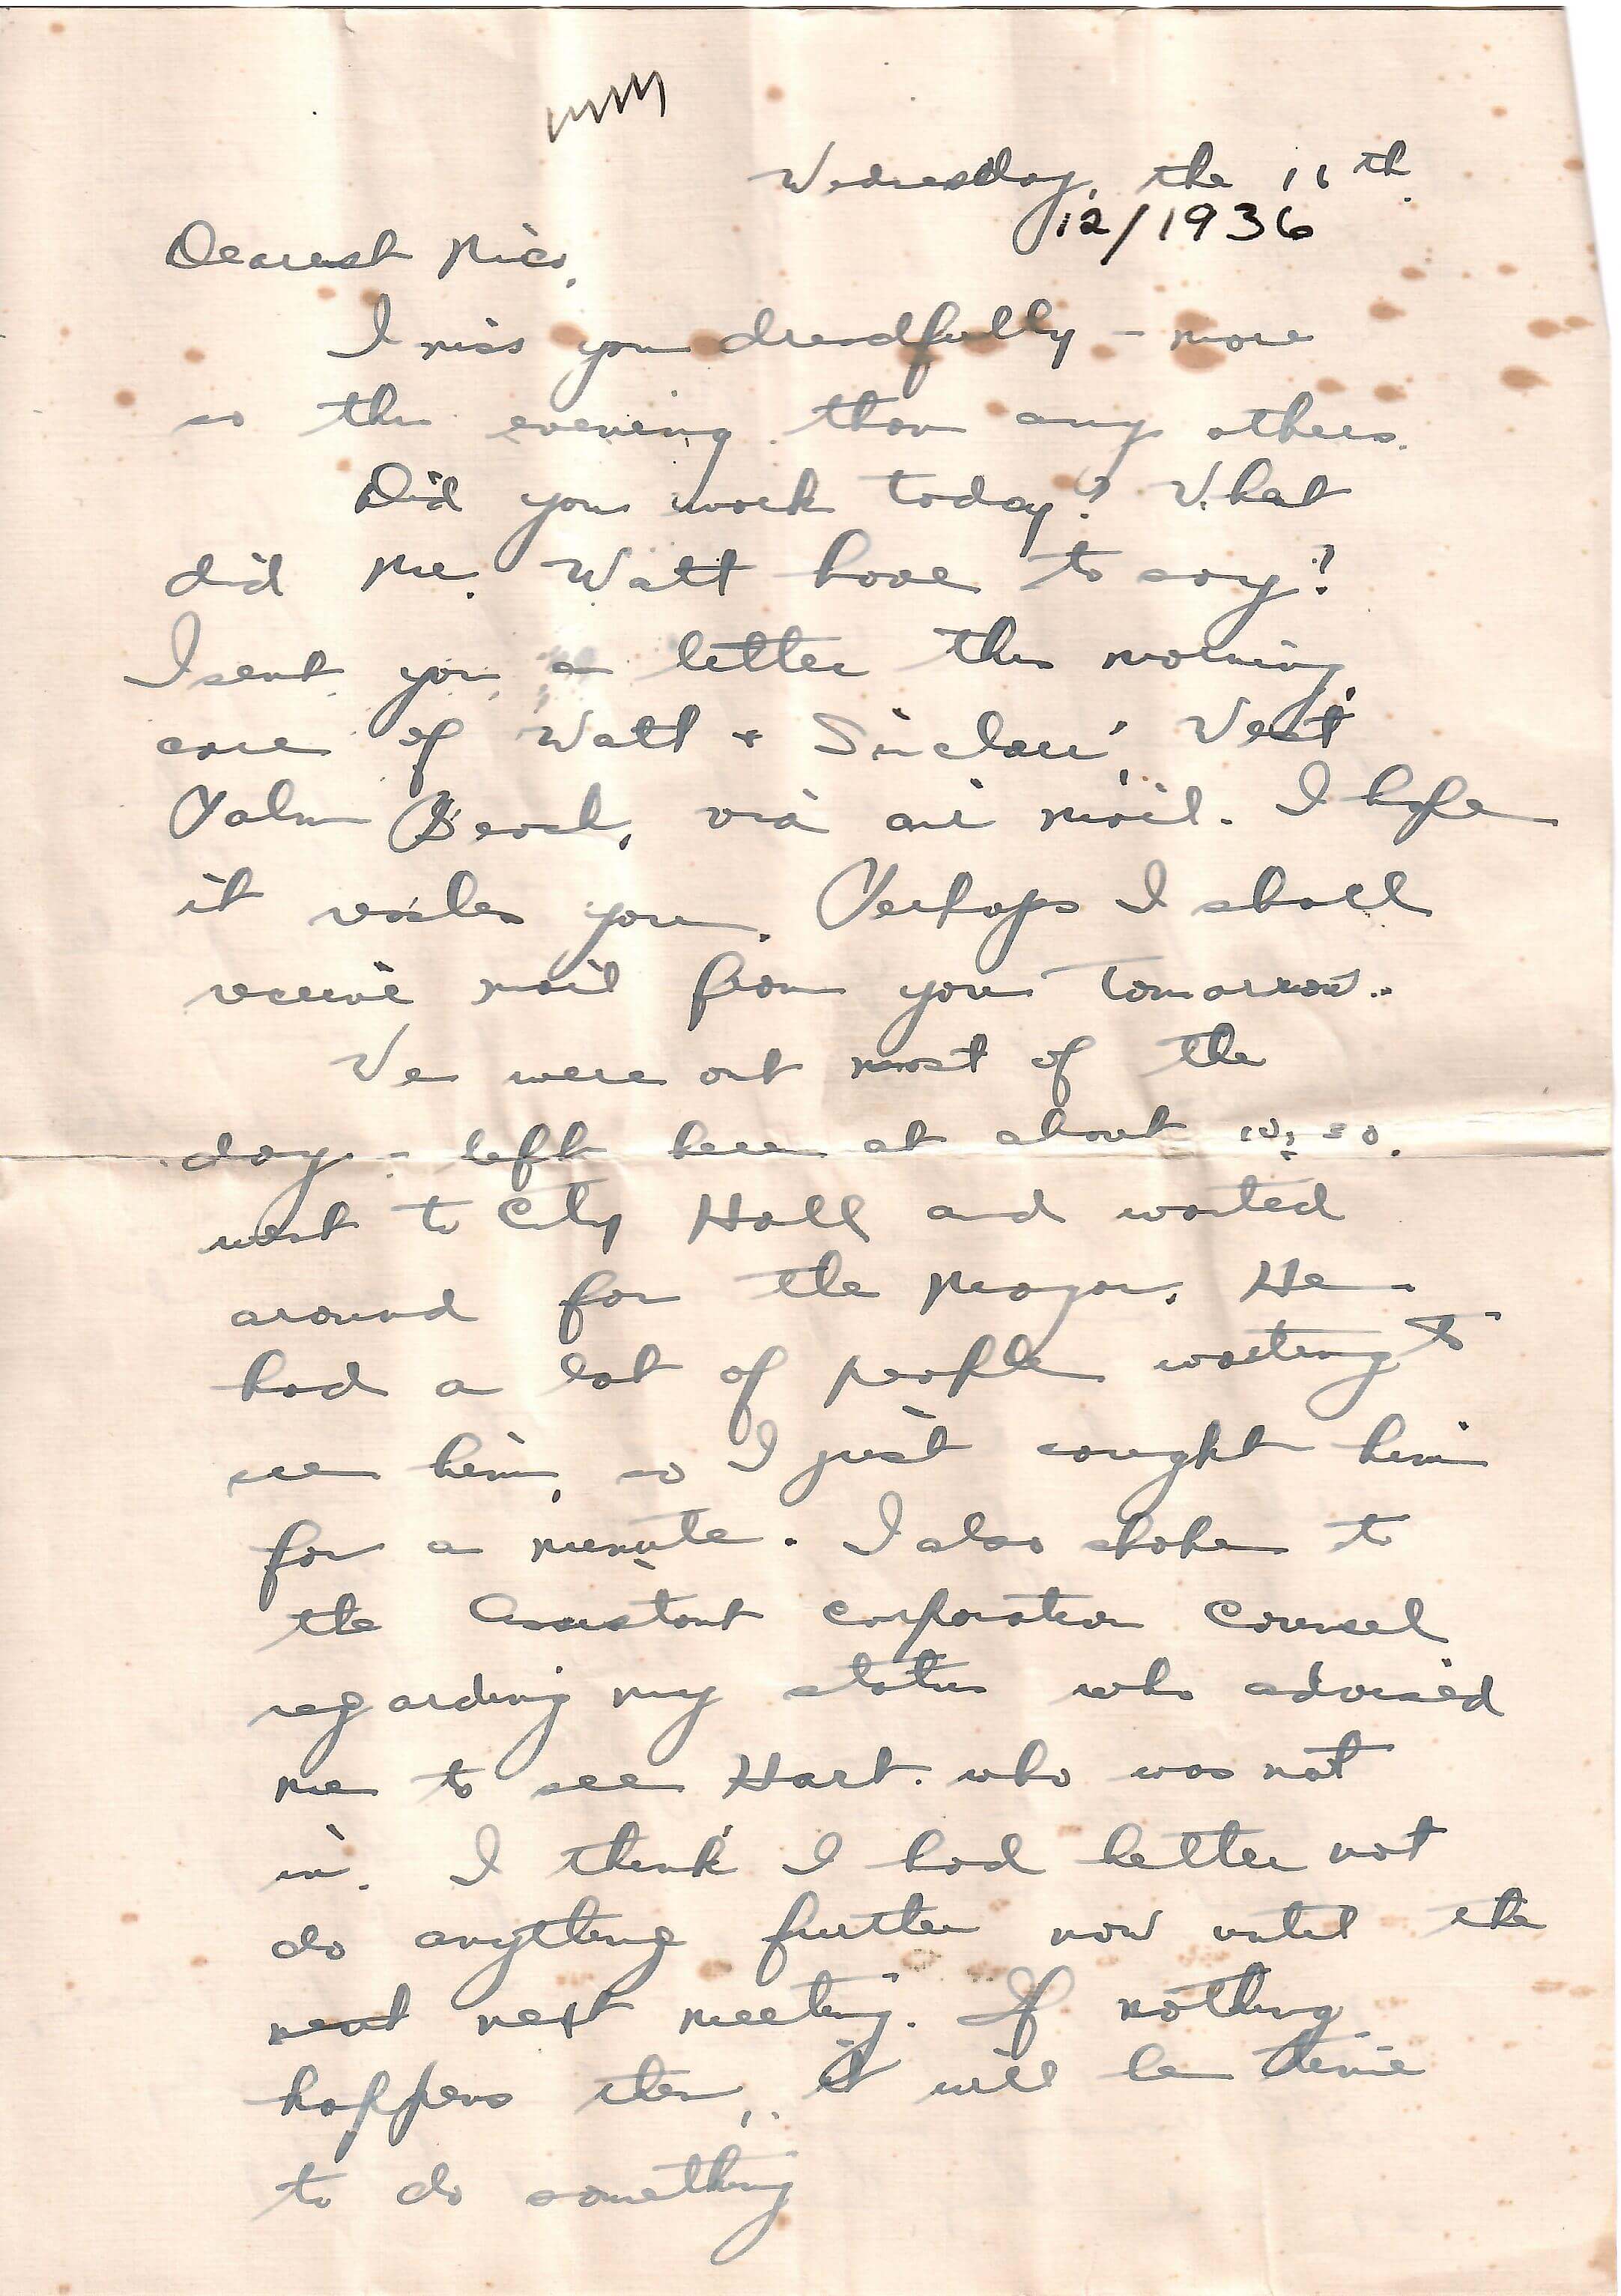 Wednesday, the 16th
12/1936
Dearest Nico,
I miss you dreadfully - more
so this evening than any others.
Did you work today? What
did Mr. Watt have to say?
I sent you a letter this morning,
care of Watt & Sinclair, West
Palm Beach, via air mail. I hope
it reaches you. Perhaps I shall
receive mail from you tomorrow.
We were out most of the
day - left here at about 10:30.
went to City Hall and waited
around for the Mayor. He
had a lot of people waiting to
see him, so I just caught him
for a minute. I also spoke to
the Assistant Corporation Counsel
regarding my status who advised
me to see Hart who was not
in. I think I had better not
do anything further now until the
next next meeting. If nothing
happens then, it will be time
to do something